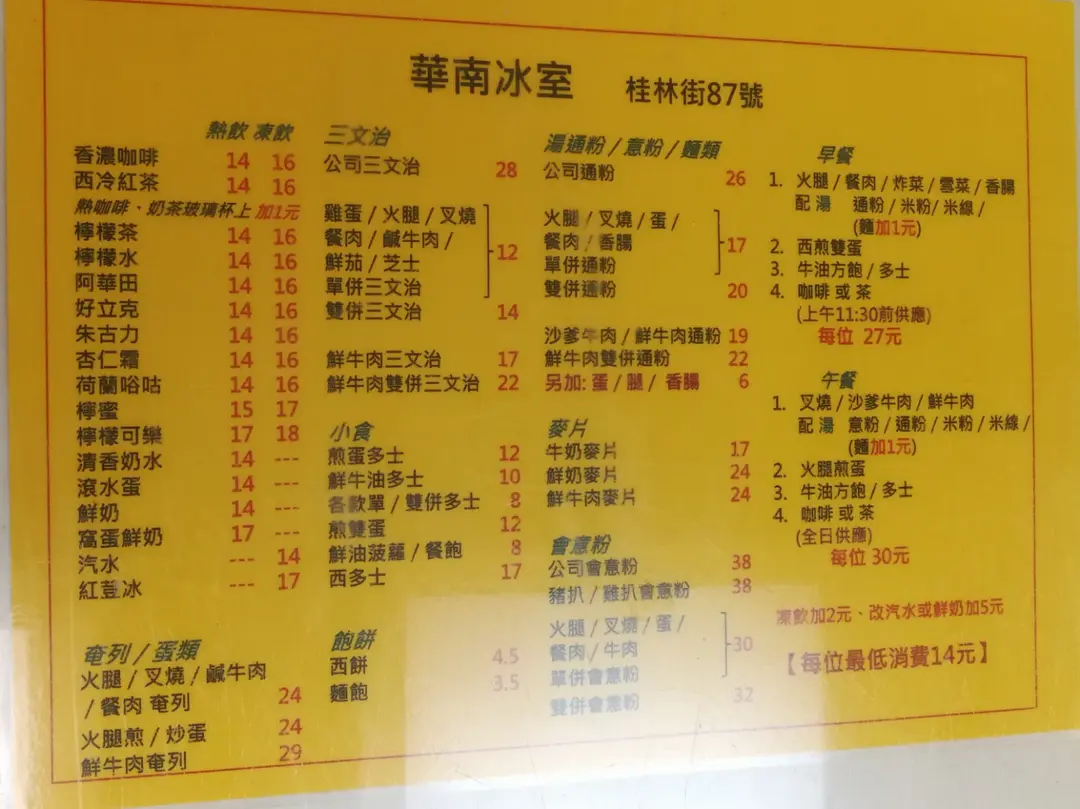 華南冰室 桂林街87號
熱飲 凍飲
香濃咖啡 14 16
西冷紅茶 14 16
熱咖啡、奶茶玻璃杯上 加1元
檸檬茶 14 16
檸檬水 14 16
阿華田 14 16
好立克 14 16
朱古力 14 16
杏仁霜 14 16
荷蘭唂咕 14 16
檸蜜 15 17
檸檬可樂 17 18
清香奶水 14 ---
滾水蛋 14 ---
鮮奶 14 ---
窩蛋鮮奶 17 ---
汽水 --- 14
紅荳冰 --- 17
奄列 / 蛋類
火腿 / 叉燒 / 鹹牛肉
/ 餐肉 奄列 24
火腿煎 / 炒蛋 24
鮮牛肉奄列 29
三文治
公司三文治 28
雞蛋 / 火腿 / 叉燒
餐肉 / 鹹牛肉 /
鮮茄 / 芝士 12
單併三文治
雙併三文治 14
鮮牛肉三文治 17
鮮牛肉雙併三文治 22
小食
煎蛋多士 12
鮮牛油多士 10
各款單 / 雙併多士 8
煎雙蛋 12
鮮油菠蘿 / 餐飽 8
西多士 17
飽餅
西餅 4.5
麵飽 3.5
湯通粉 / 意粉 / 麵類
公司通粉 26
火腿 / 叉燒 / 蛋 /
餐肉 / 香腸 17
單併通粉
雙併通粉 20
沙爹牛肉 / 鮮牛肉通粉 19
鮮牛肉雙併通粉 22
另加: 蛋 / 腿 / 香腸 6
麥片
牛奶麥片 17
鮮奶麥片 24
鮮牛肉麥片 24
會意粉
公司會意粉 38
豬扒 / 雞扒會意粉 38
火腿 / 叉燒 / 蛋 /
餐肉 / 牛肉 30
單併會意粉
雙併會意粉 32
早餐
1. 火腿 / 餐肉 / 炸菜 / 雪菜 / 香腸
配 湯 通粉 / 米粉 / 米線 /
(麵加1元)
2. 西煎雙蛋
3. 牛油方飽 / 多士
4. 咖啡 或 茶
(上午11:30前供應)
每位 27元
午餐
1. 叉燒 / 沙爹牛肉 / 鮮牛肉
配 湯 意粉 / 通粉 / 米粉 / 米線 /
(麵加1元)
2. 火腿煎蛋
3. 牛油方飽 / 多士
4. 咖啡 或 茶
(全日供應)
每位 30元
凍飲加2元、改汽水或鮮奶加5元
【每位最低消費14元】